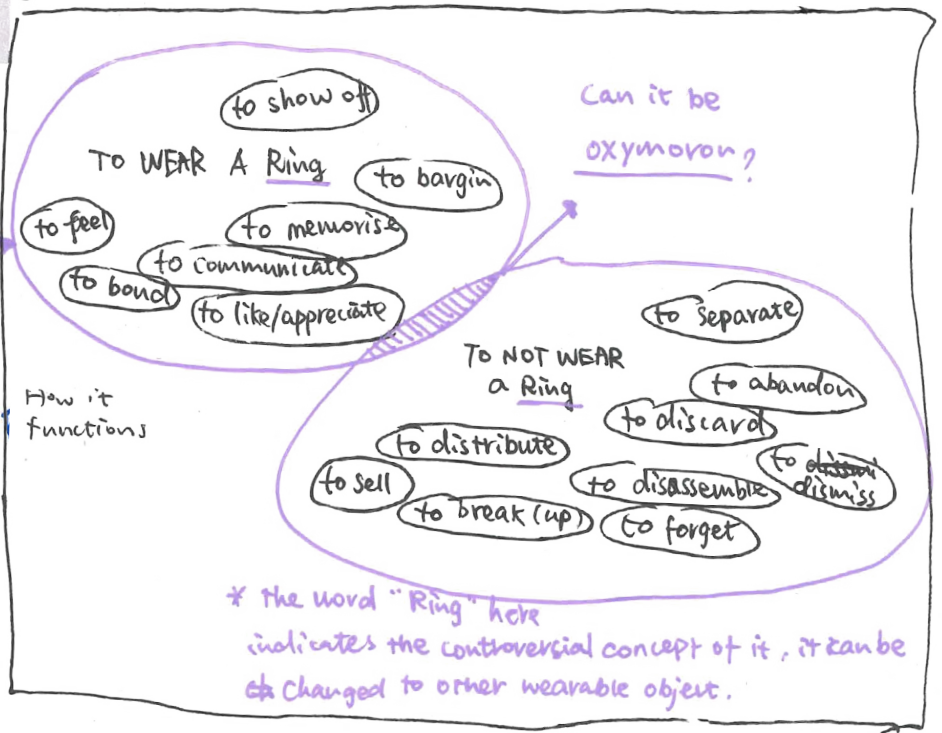 to show off
Can it be
oxymoron?
TO WEAR A Ring
to bargin
to feel
to memorise
to communicate
to bond
to like/appreciate
to separate
TO NOT WEAR
a Ring
to abandon
How it
functions
to discard
to distribute
to dismiss
to sell
to disassemble
to break (up)
to forget
* the word "Ring" here
indicates the controversial concept of it, it can be
changed to other wearable object.